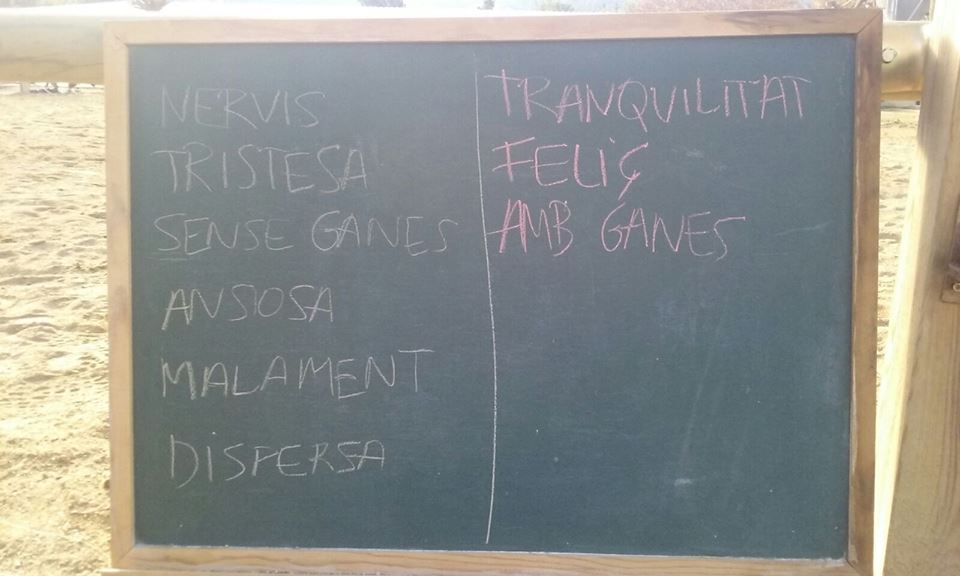 NERVIS
TRISTESA
SENSE GANES
ANSIOSA
MALAMENT
DISPERSA
TRANQUILITAT
FELIÇ
AMB GANES